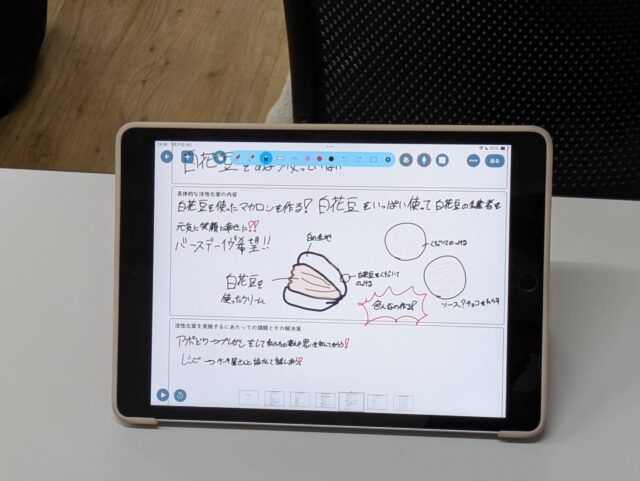 白花豆を
具体的な活性化案の内容
白花豆を使ったマカロンを作る! 白花豆をいっぱい使って白花豆の生産者を
元気に笑顔に幸せに!!
バースデーイヴ希望!!
白の生地
くだいてのっける
白花豆を
使ったクリーム
白花豆をくだいて
のっける
色んなの作る!
ソース?チョコをたらす
活性化案を実施するにあたっての課題とその解決策
アポどり→プレゼンをして私たちの
レシピ→ケーキ屋さんと協力して話しあう!